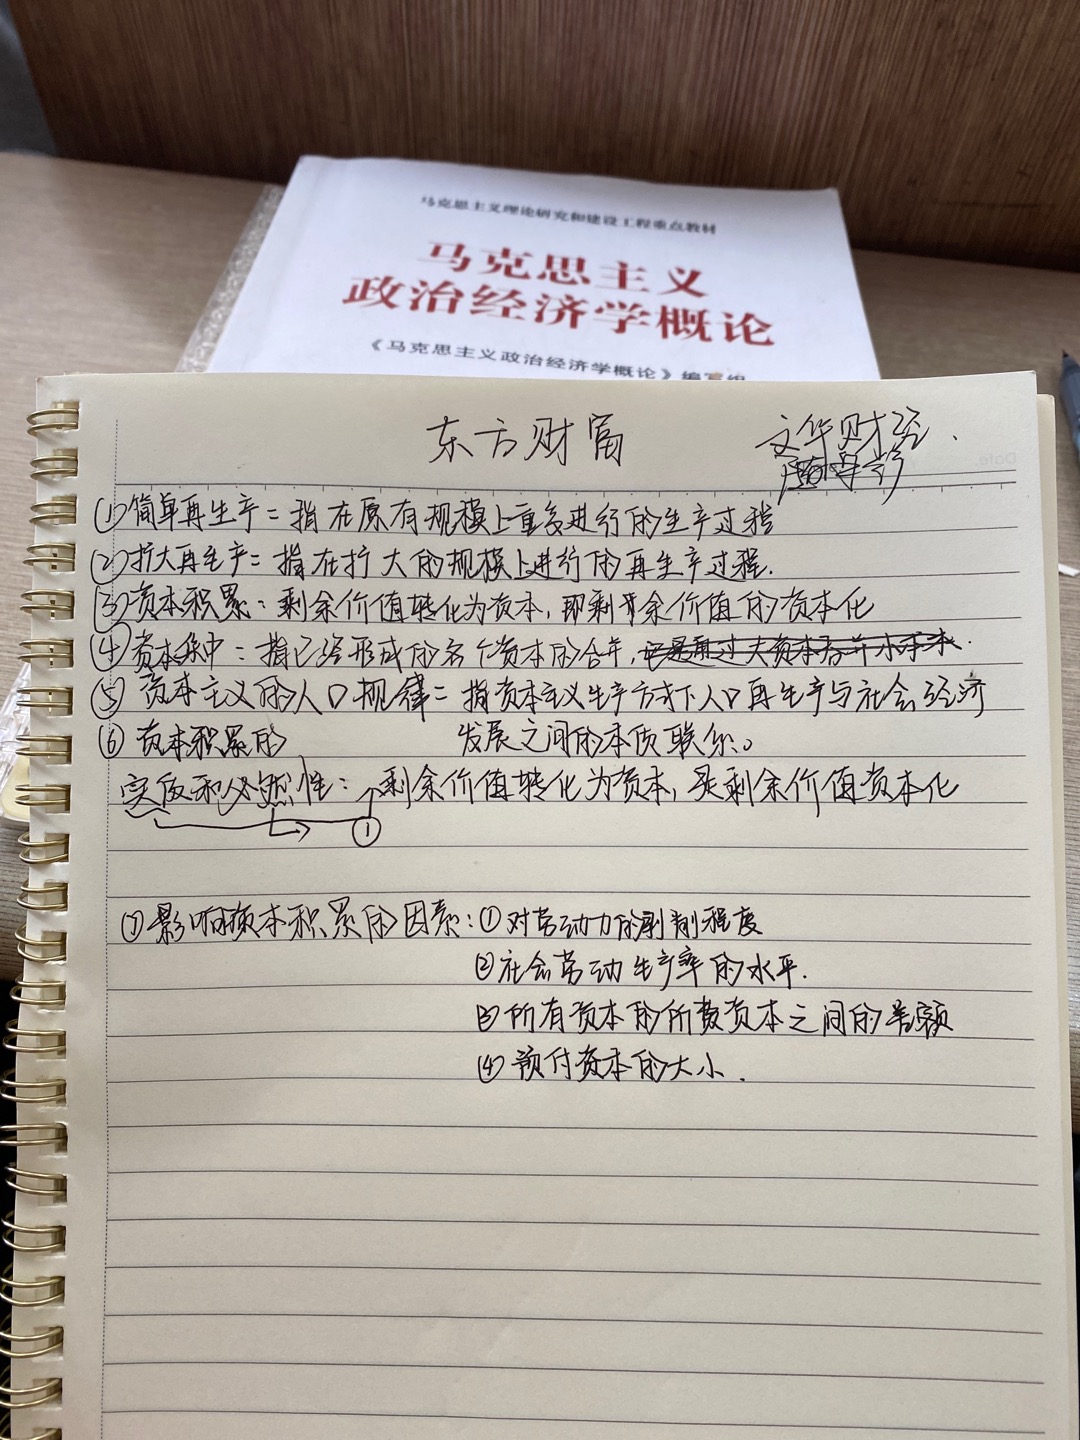 马克思主义理论研究和建设工程重点教材
马克思主义
政治经济学概论
《马克思主义政治经济学概论》编写组
东方财富
文华财经.
Date
①简单再生产=指在原有规模上重复进行的生产过程
②扩大再生产=指在扩大的规模上进行的再生产过程.
③资本积累:剩余价值转化为资本,即剩余价值的资本化
④资本集中:指已经形成的各个资本的合并,
⑤资本主义的人口规律=指资本主义生产方式下人口再生产与社会经济
发展之间的本质联系。
⑥资本积累的
实质和必然性:剩余价值转化为资本,是剩余价值资本化
①
⑦影响资本积累的因素:①对劳动力的剥削程度
②社会劳动生产率的水平.
③所有资本的所费资本之间的差额
④预付资本的大小.